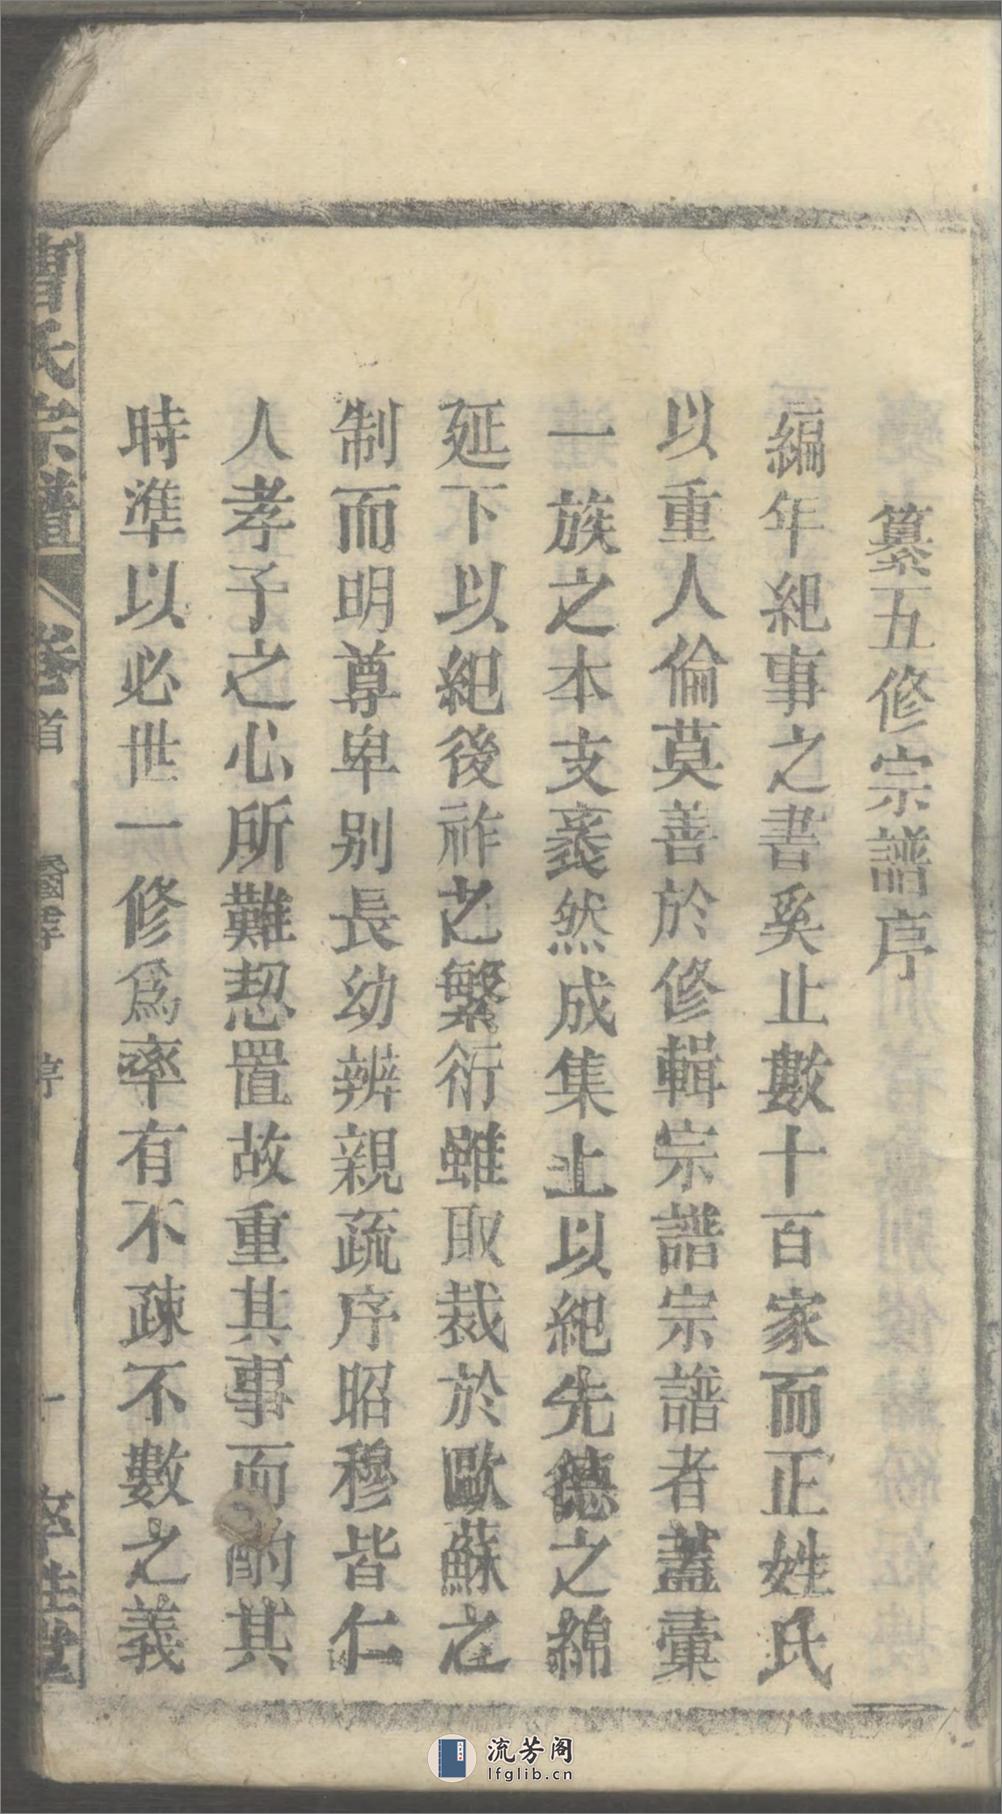 纂五修宗譜序
編年紀事之書奚止數十百家而正姓氏
以重人倫莫善於修輯宗譜宗譜者蓋彙
一族之本支裒然成集上以紀先德之綿
延下以紀後祚之繁衍雖取裁於歐蘇之
制而明尊卑别長幼辨親疏序昭穆皆仁
人孝子之心所難恝置故重其事而酌其
時準以必世一修爲率有不疎不數之義
曹氏宗譜 卷首 序 一
流芳阁
lfglib.cn